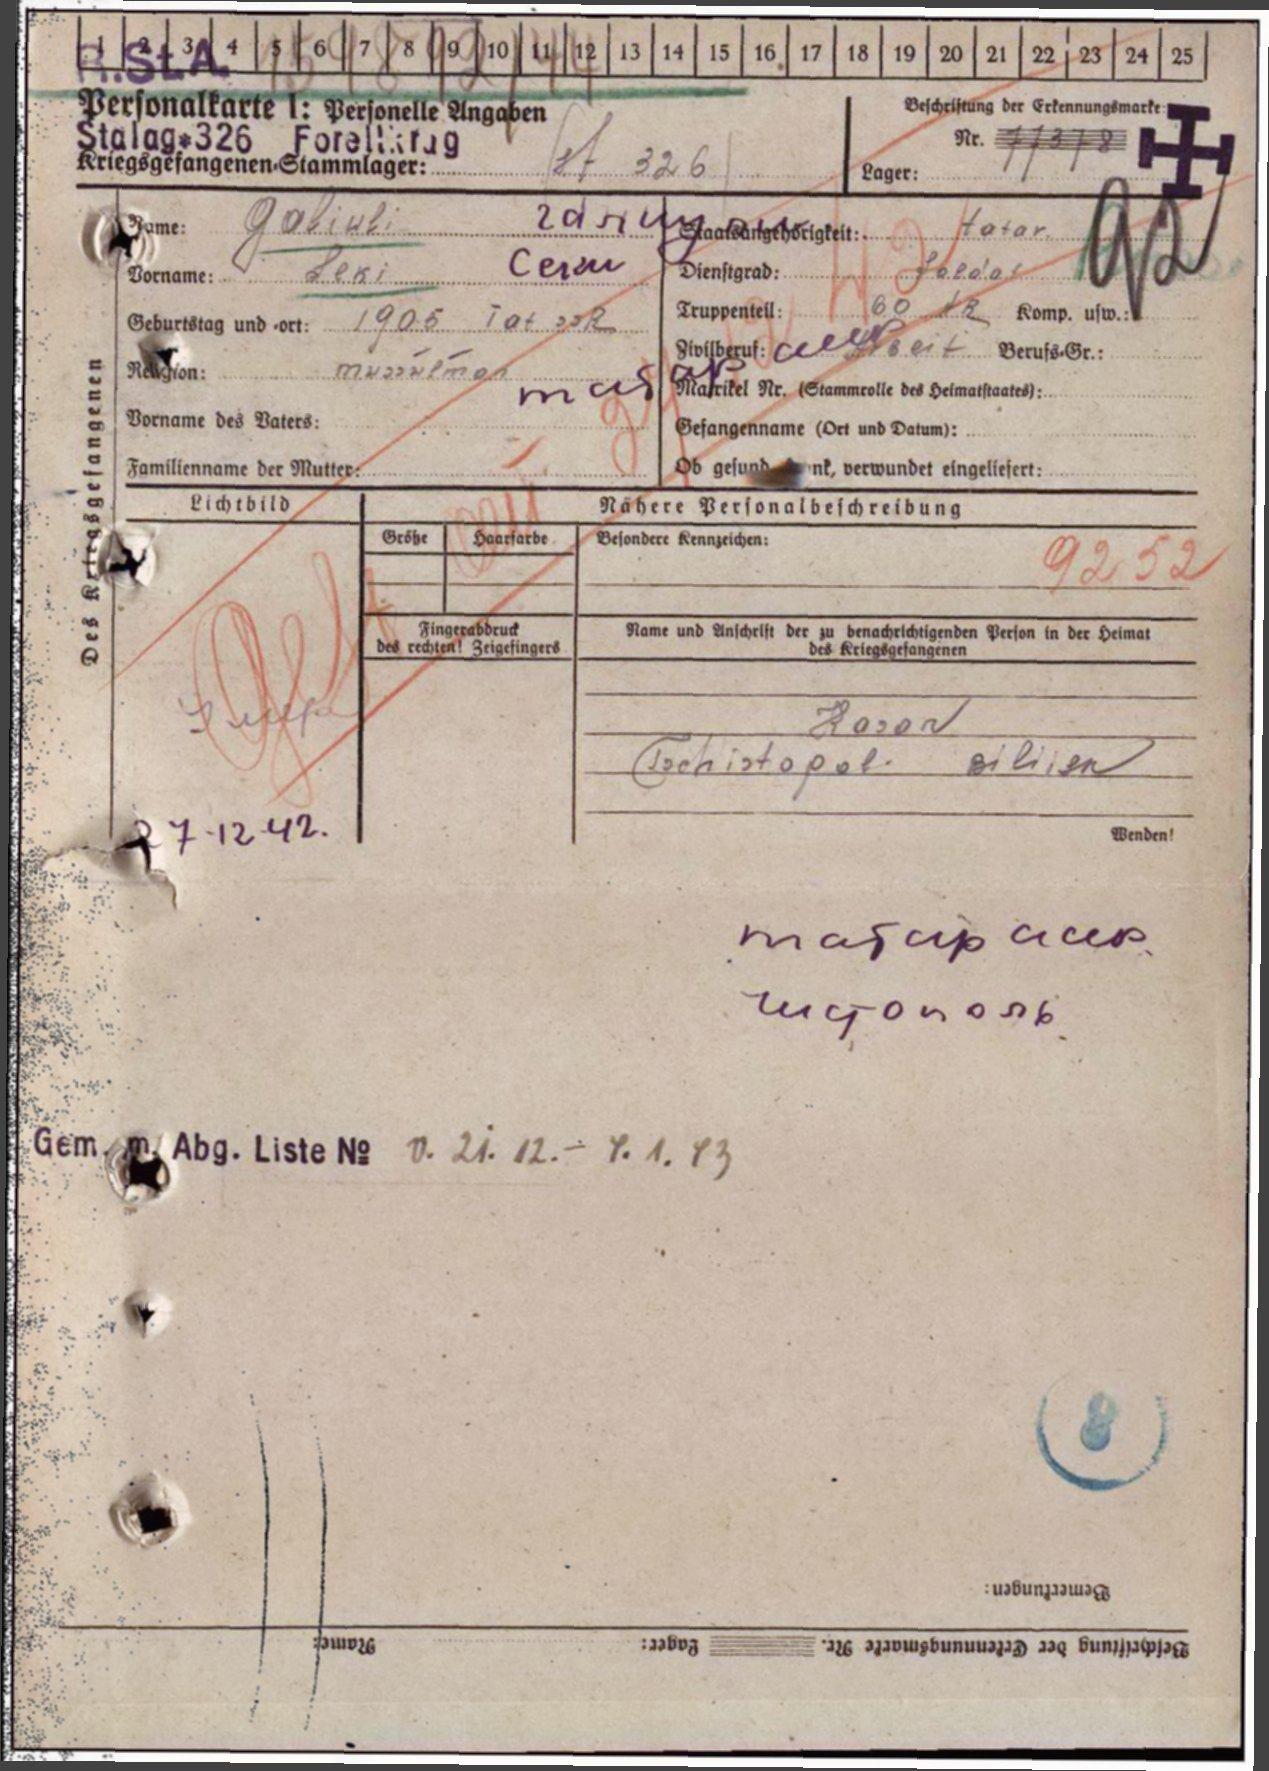 1 2 3 4 5 6 7 8 9 10 11 12 13 14 15 16 17 18 19 20 21 22 23 24 25
R.St.A.
Personalkarte I: Personelle Angaben
Beschriftung der Erkennungsmarke
Stalag 326 Forellkrug
Nr. 77378
Kriegsgefangenen-Stammlager: St 326
Lager:
Des Kriegsgefangenen
Name: Galiuli
Vorname: Seki Секи
Geburtstag und -ort: 1905 Tat SSR
Religion: musulman
татар
Vorname des Vaters:
Familienname der Mutter:
Staatsangehörigkeit: tatar.
92
Dienstgrad: Soldat
Truppenteil: 60 Komp. usw.:
Zivilberuf: Arbeit Berufs-Gr.:
Matrikel Nr. (Stammrolle des Heimatstaates):
Gefangenname (Ort und Datum):
Ob gesund, krank, verwundet eingeliefert:
Lichtbild
Nähere Personalbeschreibung
Größe Haarfarbe Besondere Kennzeichen:
9252
Fingerabdruck
des rechten! Zeigefingers
Name und Anschrift der zu benachrichtigenden Person in der Heimat
des Kriegsgefangenen
Kasan
Tschistopol.
27-12-42.
Wenden!
татар
чистополь
Gem. m. Abg. Liste № v. 21. 12. - 4. 1. 43
8
Bemerkungen:
Beschriftung der Erkennungsmarke Nr. Lager: Name: